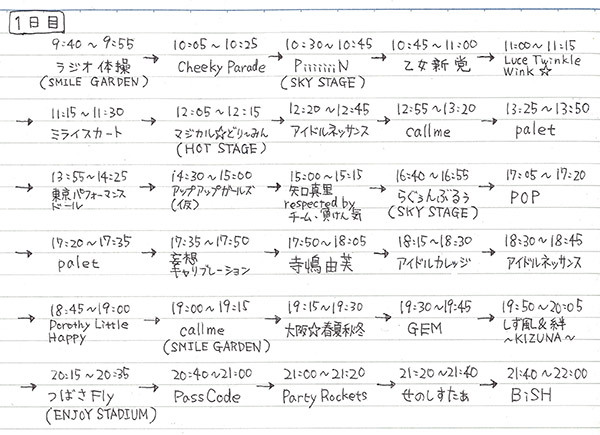 1日目
9:40～9:55 → 10:05～10:25 → 10:30～10:45 → 10:45～11:00 → 11:00～11:15
ラジオ体操 Cheeky Parade PiiiiiiiN 乙女新党 Luce Twinkle
(SMILE GARDEN) (SKY STAGE) Wink☆
→ 11:15～11:30 → 12:05～12:15 → 12:20～12:45 → 12:55～13:20 → 13:25～13:50
ミライスカート マジカル☆どり〜みん アイドルネッサンス callme palet
(HOT STAGE)
→ 13:55～14:25 → 14:30～15:00 → 15:00～15:15 → 16:40～16:55 → 17:05～17:20
東京パフォーマンス アップアップガールズ 矢口真里 らぐぅんぶるぅ POP
ドール (仮) respected by (SKY STAGE)
チーム・負けん気
→ 17:20～17:35 → 17:35～17:50 → 17:50～18:05 → 18:15～18:30 → 18:30～18:45
palet 妄想 寺嶋由芙 アイドルカレッジ アイドルネッサンス
キャリブレーション
→ 18:45～19:00 → 19:00～19:15 → 19:15～19:30 → 19:30～19:45 → 19:50～20:05
Dorothy Little callme 大阪☆春夏秋冬 GEM しず風&絆
Happy (SMILE GARDEN) ～KIZUNA～
→ 20:15～20:35 → 20:40～21:00 → 21:00～21:20 → 21:20～21:40 → 21:40～22:00
つばさFly PassCode Party Rockets せのしすたぁ BiSH
(ENJOY STADIUM)